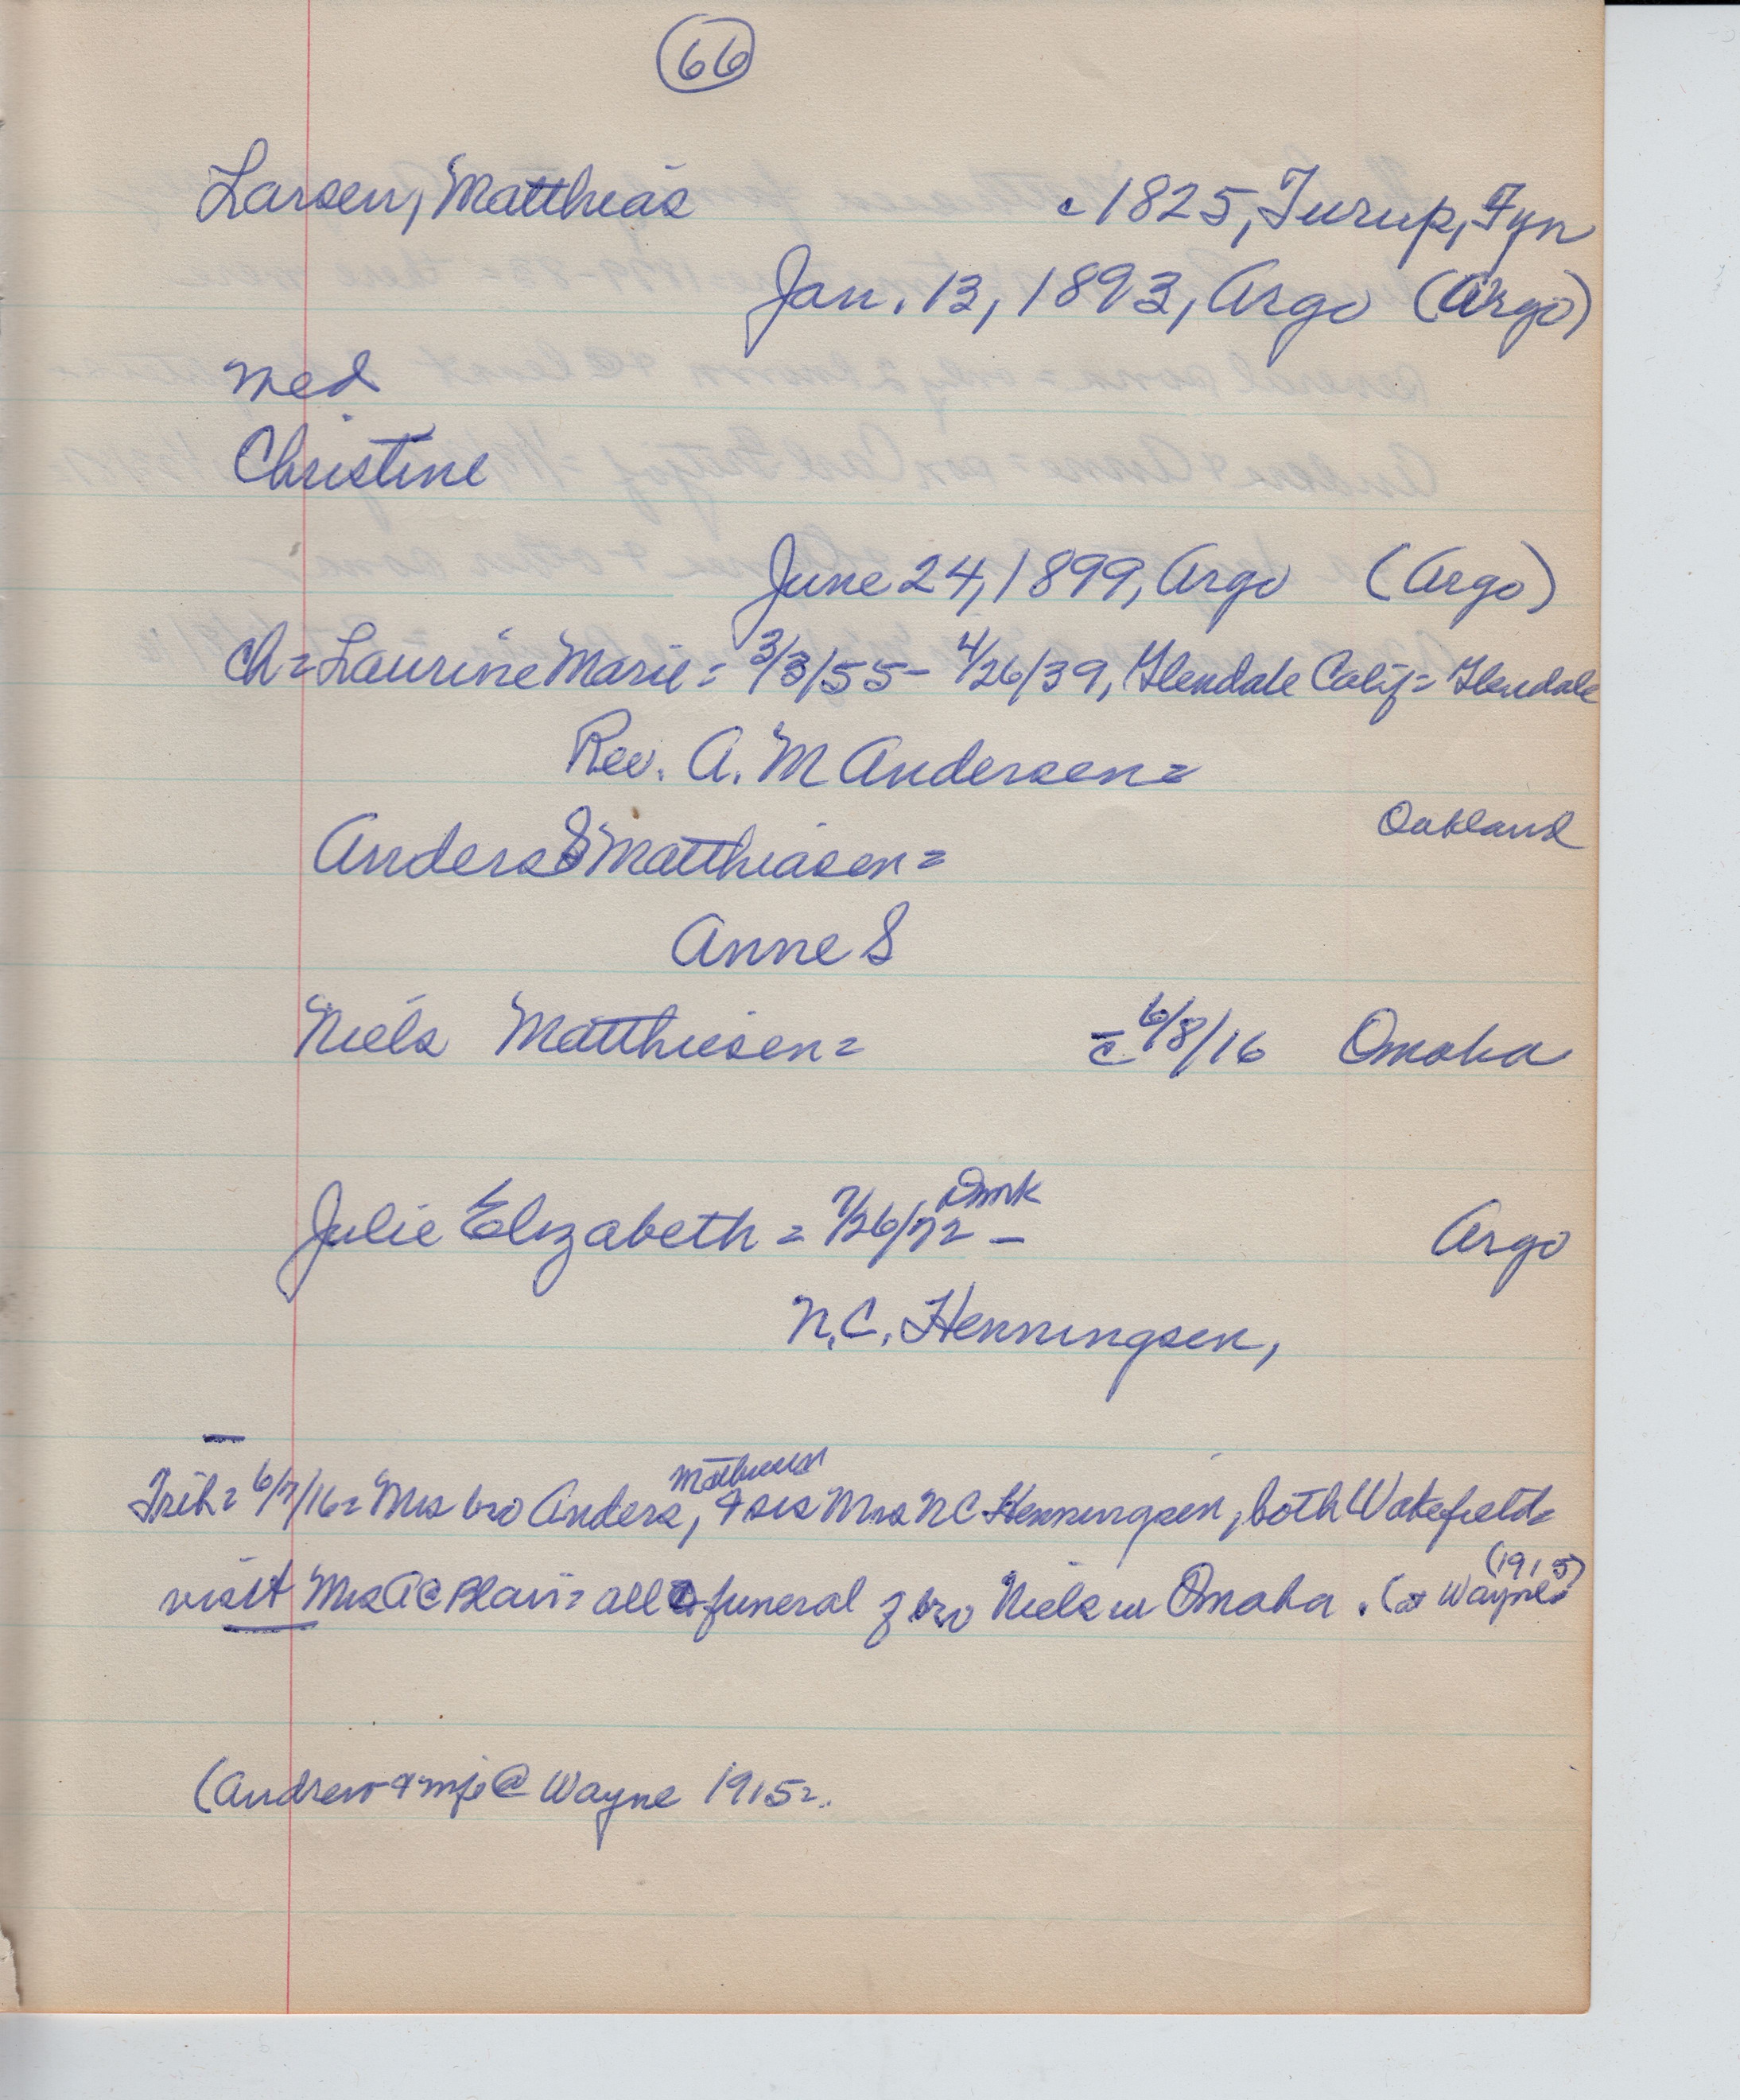 66
Larsen, Matthias c 1825, Turup, Fyn
Jan. 13, 1893, Argo (Argo)
med
Christine
June 24, 1899, Argo (Argo)
ch = Laurine Marie = 3/3/55 - 4/26/39, Glendale Calif = Glendale
Rev. A. M Andersen =
Oakland
Anders S Matthiasen =
Anne S
Niels Matthiesen = = c 6/8/16 Omaha
Dmrk
Julie Elizabeth = 7/26/72 - Argo
N. C. Henningsen,
Mathiesen
Trib = 6/7/16 = Mrs bro Anders, + sis Mrs N C Henningsen, both Wakefield =
(1915)
visit Mrs A @ Blair = all @ funeral of bro Niels in Omaha. (@ Wayne
(Andrew + @ Wayne 1915 =.